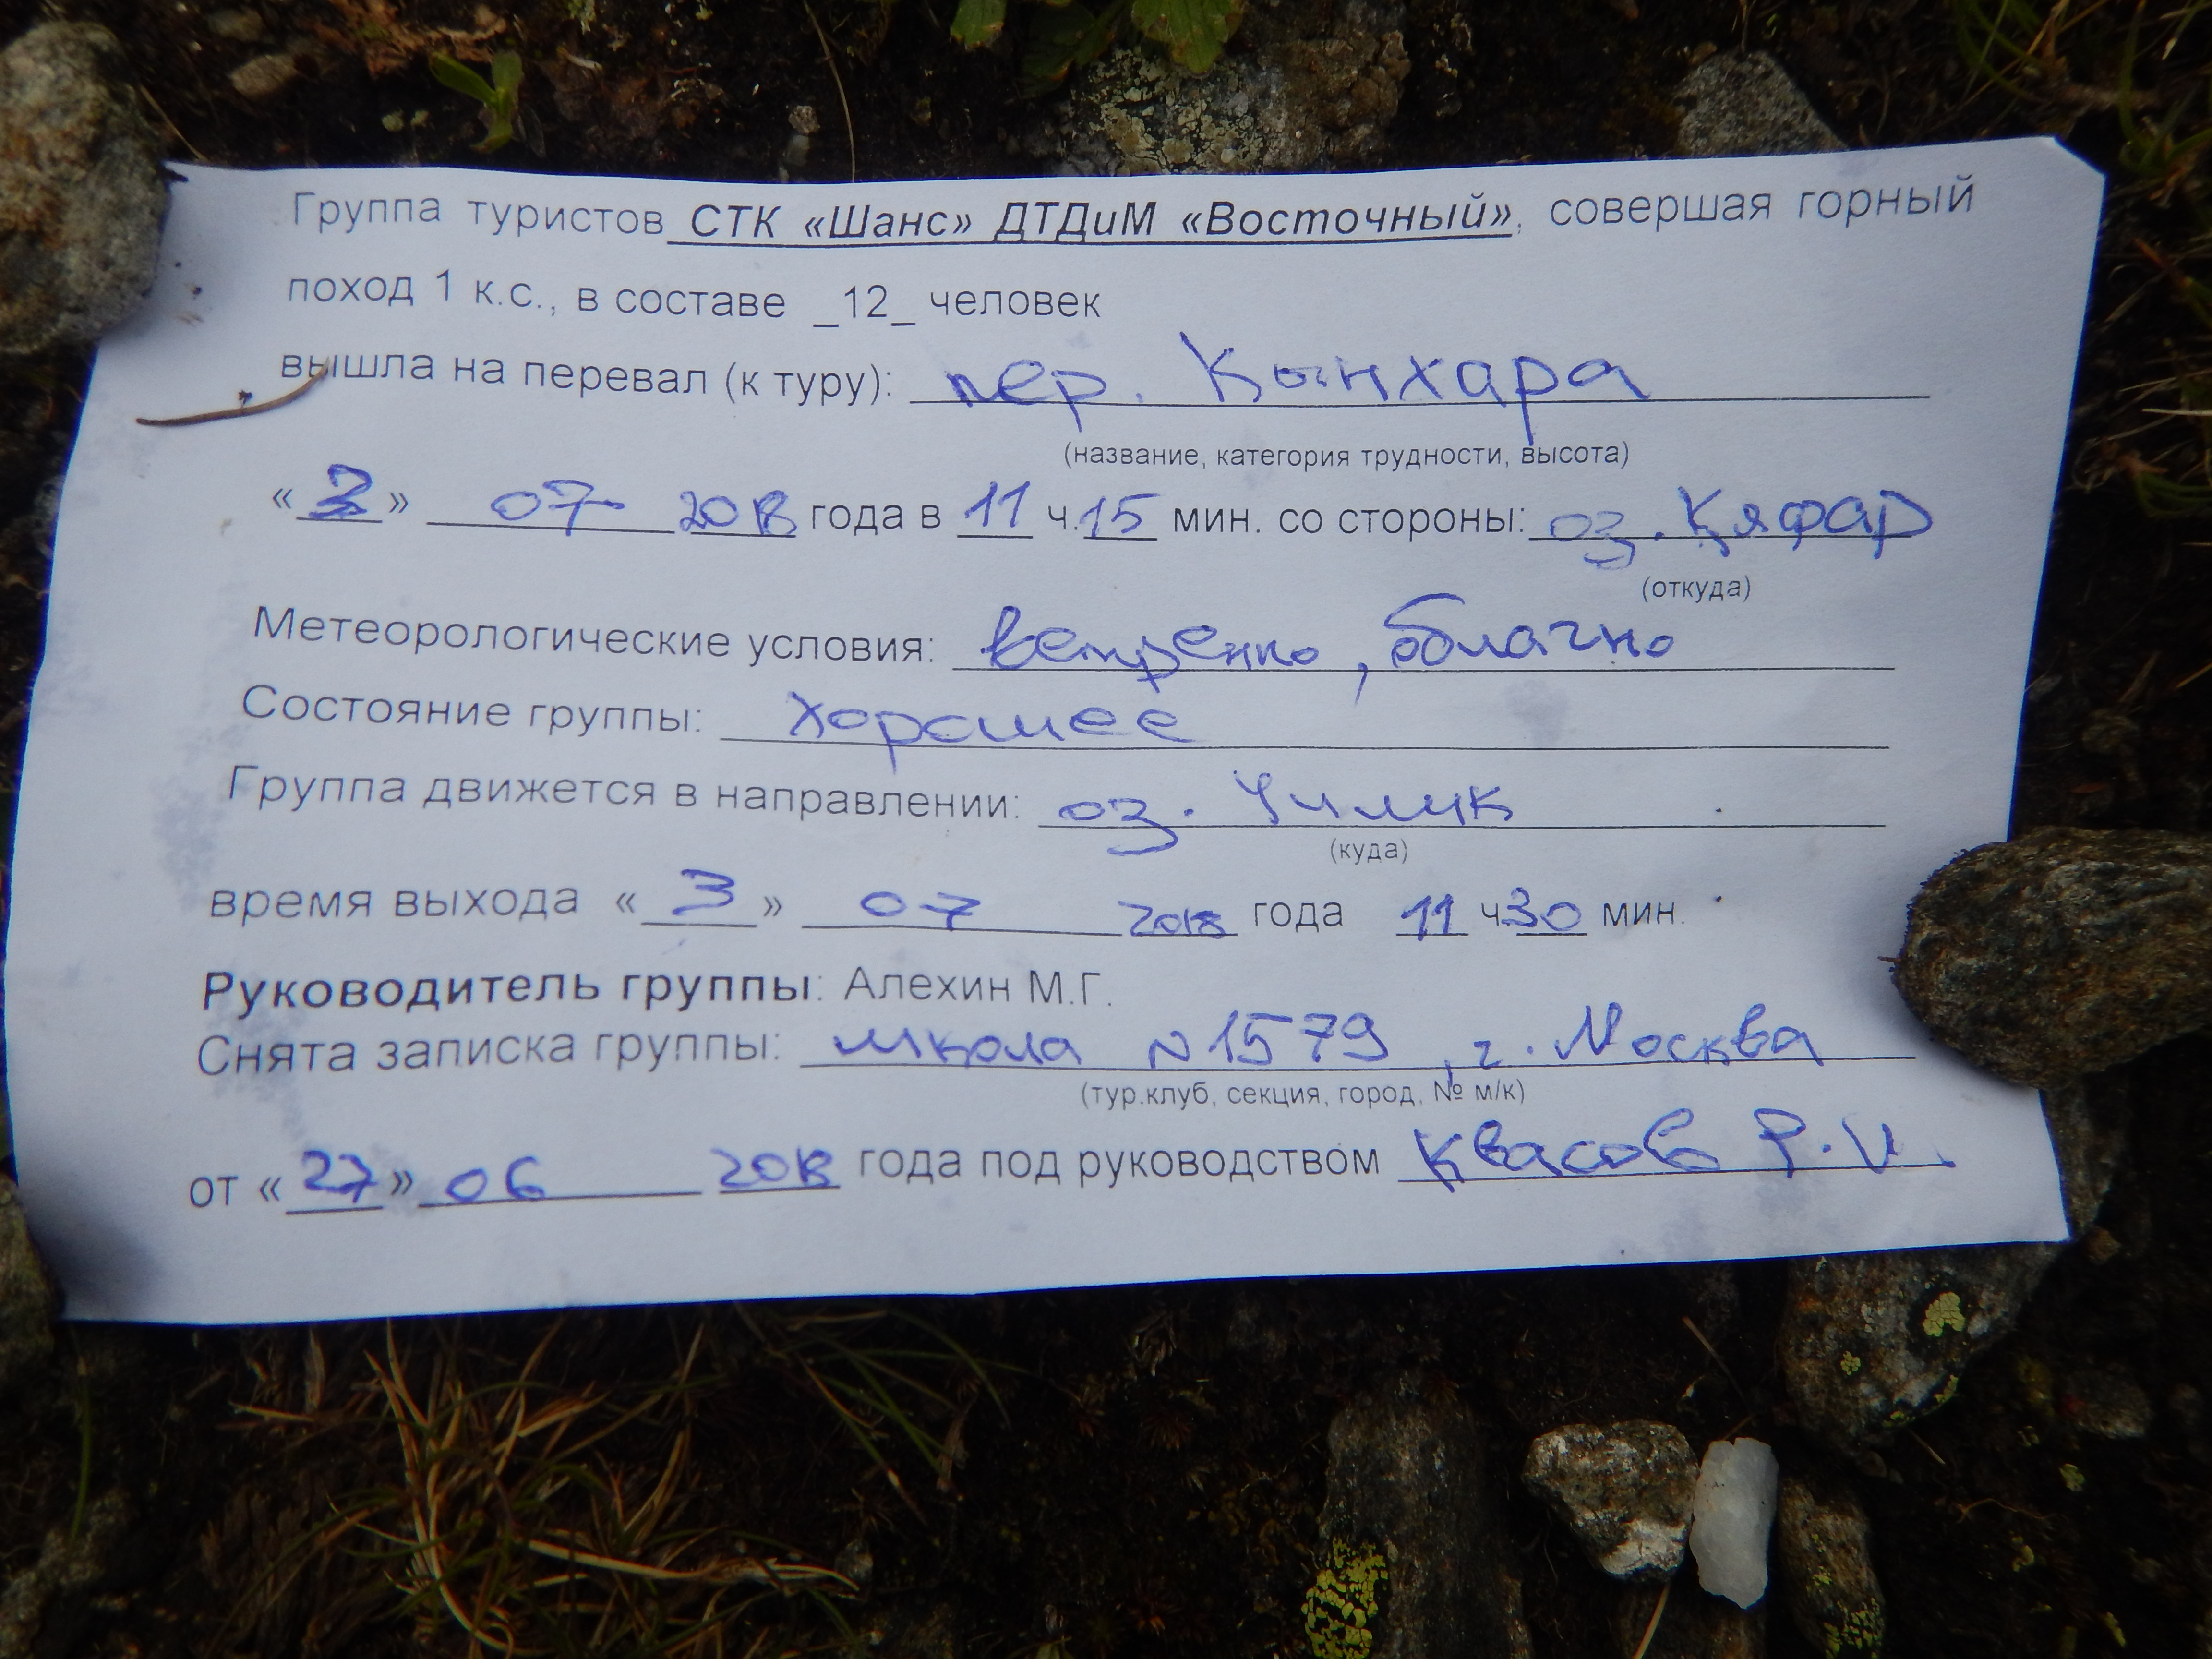 Группа туристов СТК «Шанс» ДТДиМ «Восточный», совершая горный
поход 1 к.с., в составе _12_ человек
вышла на перевал (к туру): пер. Кынхара
(название, категория трудности, высота)
«3» 07 2018 года в 11 ч. 15 мин. со стороны: оз. Кяфар
(откуда)
Метеорологические условия: ветренно, облачно
Состояние группы: хорошее
Группа движется в направлении: оз. Чилик
(куда)
время выхода «3» 07 2018 года 11 ч. 30 мин.
Руководитель группы: Алехин М.Г.
Снята записка группы: школа N1579, г. Москва
(тур.клуб, секция, город, № м/к)
от «27» 06 2018 года под руководством Квасов Р.И.